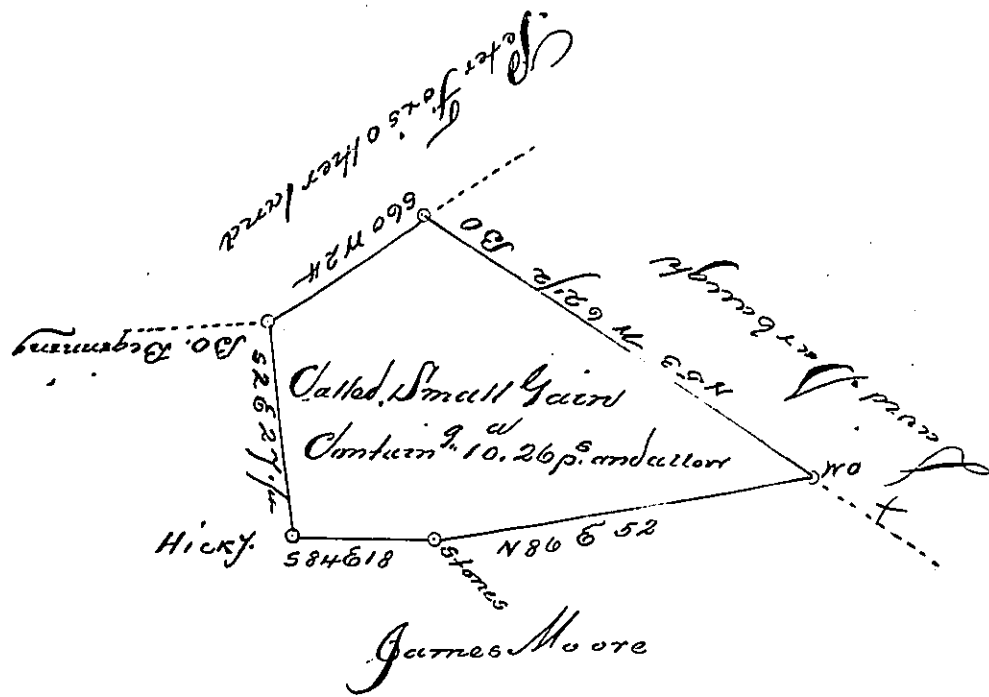 Peter Fox's other land
S 60 W 24
BO
N 62 1/2 W 53
David Deerbaugh
BO. Beginning
S 2 E 27.
Called, Small Gain
Containg. 10.a 26 ps. and allow
WO
Hicky.
S 84 E 18
Stones
N 86 E 52
James Moore